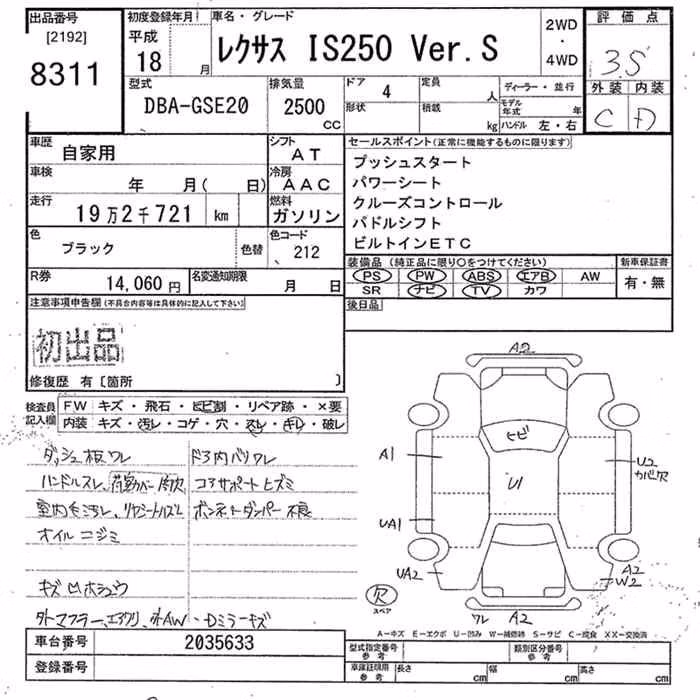 出品番号
[2192]
8311
初度登録年月
平成
18 月
車名・グレード
レクサス IS250 Ver.S
2WD
・
4WD
評価点
3.5
外装 内装
C D
型式
DBA-GSE20
排気量
2500
CC
ドア 4
形状
定員 人
積載 kg
ディーラー・並行
モデル年式 年
ハンドル 左・右
車歴
自家用
シフト
AT
車検
年 月( 日)
冷房
AAC
走行
19万2千721 km
燃料
ガソリン
色
ブラック
色替
色コード
212
R券
14,060 円
名変通知期限
月 日
セールスポイント(正常に機能するものに限ります)
プッシュスタート
パワーシート
クルーズコントロール
パドルシフト
ビルトインETC
装備品 (純正品に限り○をつけてください)
新車保証書
PS PW ABS エアB AW
SR ナビ TV カワ
有・無
後日品
注意事項申告欄(不具合内容等は具体的に記入して下さい)
初出品
修復歴 有〔箇所 〕
検査員
記入欄
FW キズ・飛石・ヒビ割・リペア跡・×要
内装 キズ・汚レ・コゲ・穴・スレ・キレ・破レ
ダッシュ板ワレ
ドア内バリワレ
ハンドルスレ、
コアサポートヒズミ
ボンネットダンパー不良
オイルニジミ
キズ凹ホシュウ
外マフラー、エアクリ、外AW、Dミラーキズ
A2
ヒビ
A1
U1
U2
カバ欠
UA1
UA2
A2
W2
ワレ A2
スペア
A-キズ E-エクボ U-凹み W-補修跡 S-サビ C-腐食 XX-交換済
車台番号
2035633
登録番号
型式指定番号
参考
類別区分番号
参考
車庫証明用
参考
長さ cm
幅 cm
高さ cm